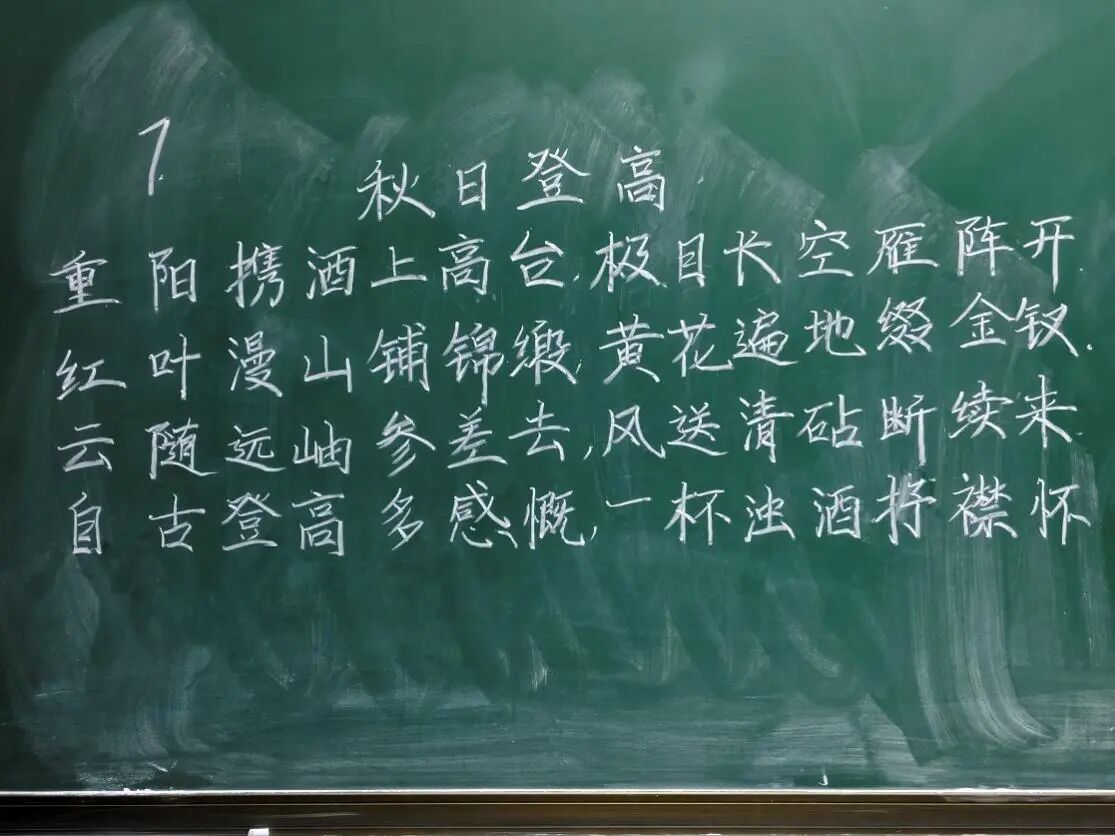 7
秋日登高
重阳携酒上高台,极目长空雁阵开
红叶漫山铺锦缎,黄花遍地缀金钗.
云随远岫参差去,风送清砧断续来
自古登高多感慨,一杯浊酒抒襟怀